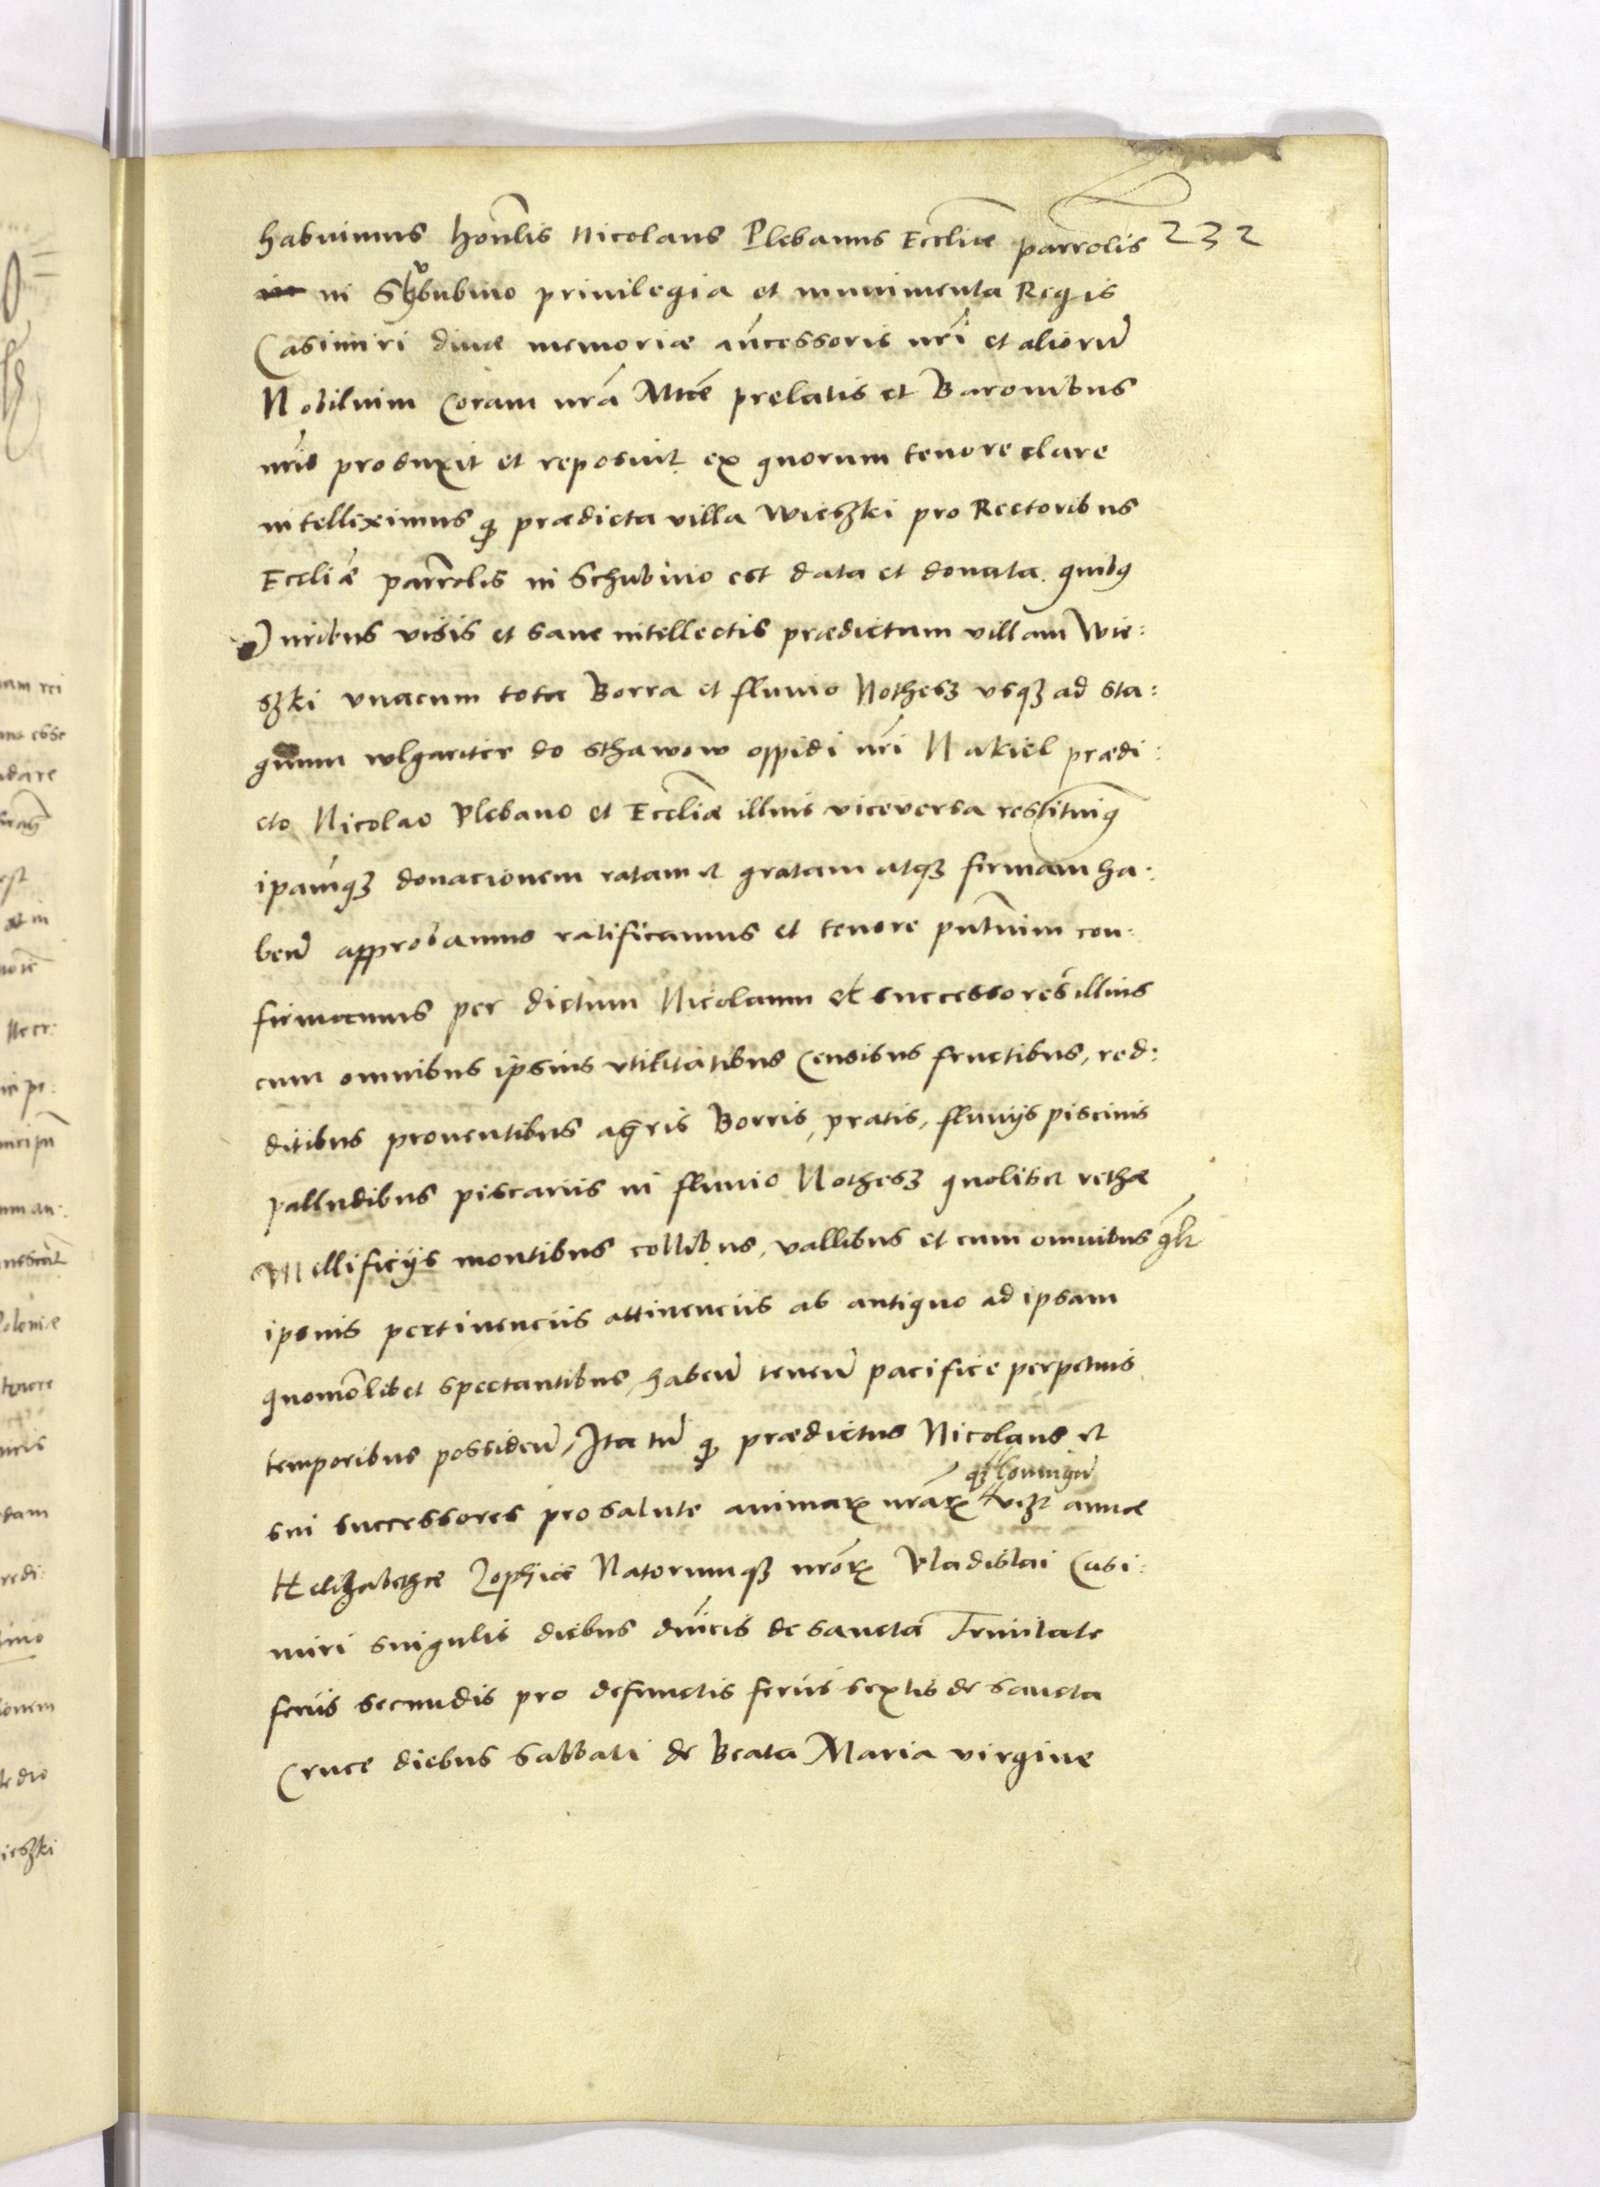 habuimus honlis Nicolaus Plebanus Eccliae parrolis 232
in Schubino privilegia et munimenta Regis
Casimiri divae memoriae ancessoris nri et aliorum
Nobilium Coram nra Mte prelatis et Baronibus
nris produxit et reposuit ex quorum tenore clare
intelliximus q praedicta villa Wieszki pro Rectoribus
Eccliae parrolis in Schubino est data et donata. quibus
Juribus visis et sane intellectis praedictam villam Wie:
szki vnacum tota Borra et fluvio Nothesz vsqz ad sta:
gnum wlgariter do sthawow oppidi nri Nakiel praedi:
cto Nicolao Plebano et Eccliae illius viceversa restituimus
ipamqz donacionem ratam et gratam atqz firmam ha:
ben approbamus ratificamus et tenore pntium con:
firmamus per dictum Nicolaum et successores illius
cum omnibus ipsius vtilitatibus Censibus fructibus, red:
ditibus proventibus agris Borris, pratis, fluvijs piscinis
palludibus piscariis in fluvio Nothesz quolibet rethae
Mellificijs montibus collibus, vallibus et cum omnibus glr
ipsius pertinenciis attinenciis ab antiquo ad ipsam
quomolibet spectantibus, haben tenen pacifice perpetuis
temporibus possiden, Ita tn q praedictus Nicolaus et
sui successores pro salute animarum nrarum vizt annae
Helizabethae Zophiae Natorumqz nrorum Vladislai Casi:
miri singulis diebus dnicis de sancta Trinitate
feriis secundis pro defunctis feriis sextis de sancta
Cruce diebus sabbati de Beata Maria virgine